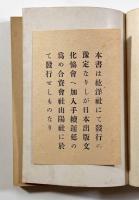 本書は紘洋社にて發行の
豫定なりしが日本出版文
化協會へ加入手續遲延の
爲め合資會社山陽社に於
て發行せしものなり